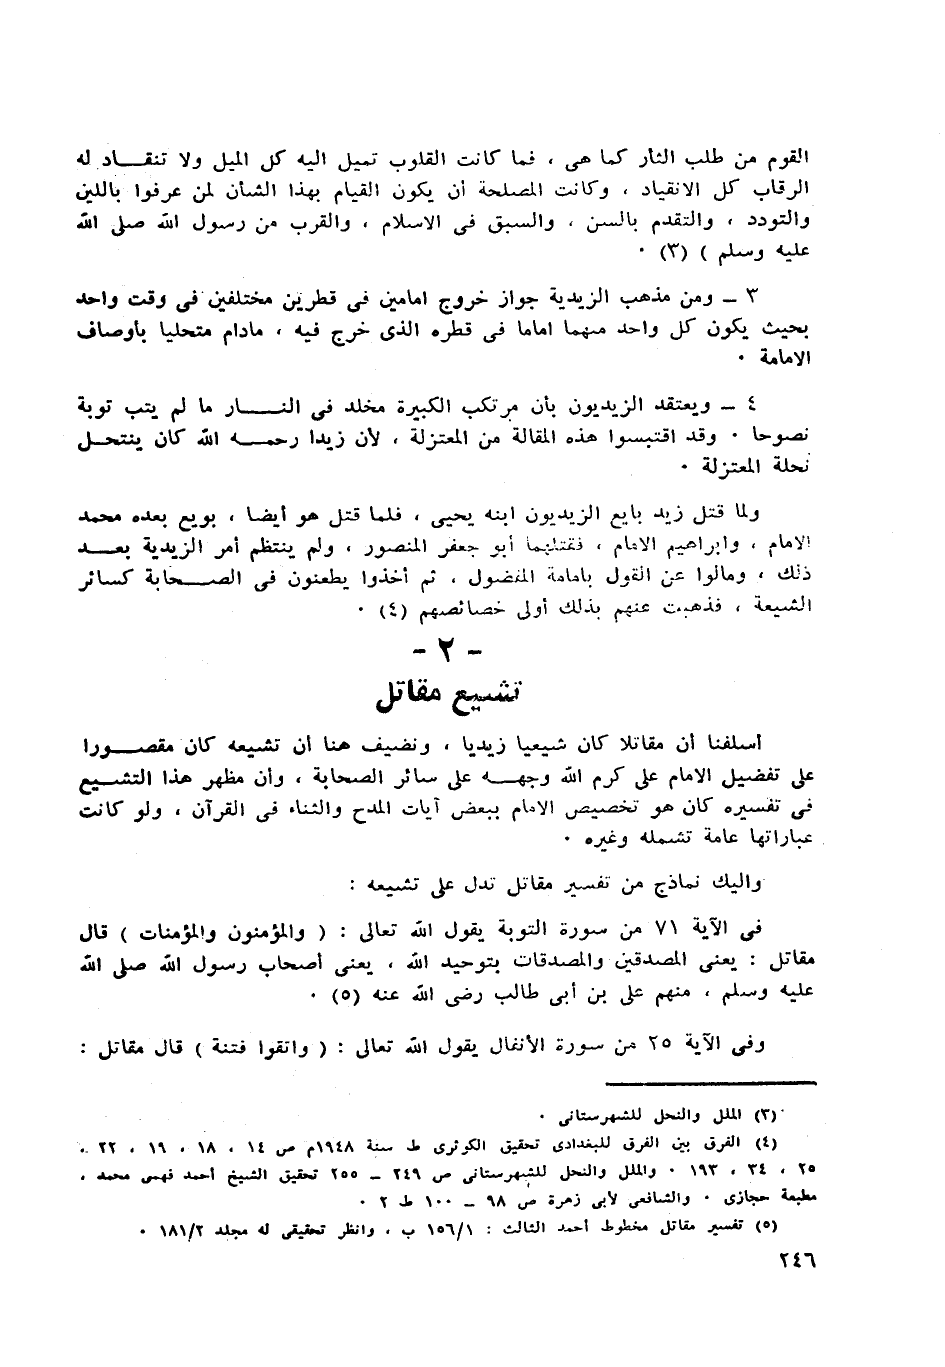 القوم من طلب الثأر كما هى ، فما كانت القلوب تميل اليه كل الميل ولا تنقـــاد له
الرقاب كل الانقياد ، وكانت المصلحة أن يكون القيام بهذا الشأن لمن عرفوا باللين
والتودد ، والتقدم بالسن ، والسبق فى الاسلام ، والقرب من رسول الله صلى الله
عليه وسلم ) (٣) ٠
٣ ــ ومن مذهب الزيدية جواز خروج امامين فى قطرين مختلفين فى وقت واحد
بحيث يكون كل واحد منهما اماما فى قطره الذى خرج فيه ، مادام متحليا بأوصاف
الامامة ٠
٤ ــ ويعتقد الزيديون بأن مرتكب الكبيرة مخلد فى النـــــار ما لم يتب توبة
نصوحا ٠ وقد اقتبسوا هذه المقالة من المعتزلة ، لأن زيدا رحمـــه الله كان ينتحـــل
نحلة المعتزلة ٠
ولما قتل زيد بايع الزيديون ابنه يحيى ، فلما قتل هو أيضا ، بويع بعده محمد
الامام ، وابراهيم الامام ، فقتلهما أبو جعفر المنصور ، ولم ينتظم أمر الزيدية بعـــد
ذلك ، ومالوا عن القول بامامة المفضول ، ثم أخذوا يطعنون فى الصـــحابة كسائر
الشيعة ، فذهبت عنهم بذلك أولى خصائصهم (٤) ٠
- ٢ -
تشيع مقاتل
أسلفنا أن مقاتلا كان شيعيا زيديا ، ونضيف هنا أن تشيعه كان مقصـــورا
على تفضيل الامام على كرم الله وجهـــه على سائر الصحابة ، وأن مظهر هذا التشـــيع
فى تفسيره كان هو تخصيص الامام ببعض آيات المدح والثناء فى القرآن ، ولو كانت
عباراتها عامة تشمله وغيره ٠
واليك نماذج من تفسير مقاتل تدل على تشيعه :
فى الآية ٧١ من سورة التوبة يقول الله تعالى : ( والمؤمنون والمؤمنات ) قال
مقاتل : يعنى المصدقين والمصدقات بتوحيد الله ، يعنى أصحاب رسول الله صلى الله
عليه وسلم ، منهم على بن أبى طالب رضى الله عنه (٥) ٠
وفى الآية ٢٥ من سورة الأنفال يقول الله تعالى : ( واتقوا فتنة ) قال مقاتل :
(٣) الملل والنحل للشهرستانى ٠
(٤) الفرق بين الفرق للبغدادى تحقيق الكوثرى ط سنة ١٩٤٨م ص ١٤ ، ١٨ ، ١٩ ، ٢٢ ،
٢٥ ، ٣٤ ، ١٩٣ ٠ والملل والنحل للشهرستانى ص ٢٤٩ ــ ٢٥٥ تحقيق الشيخ أحمد فهمى محمد ،
مطبعة حجازى ٠ والشافعى لأبى زهرة ص ٩٨ ــ ١٠٠ ط ٢ ٠
(٥) تفسير مقاتل مخطوط أحمد الثالث : ١٥٦/١ ب ، وانظر تحقيقى له مجلد ١٨١/٢ ٠
٢٤٦